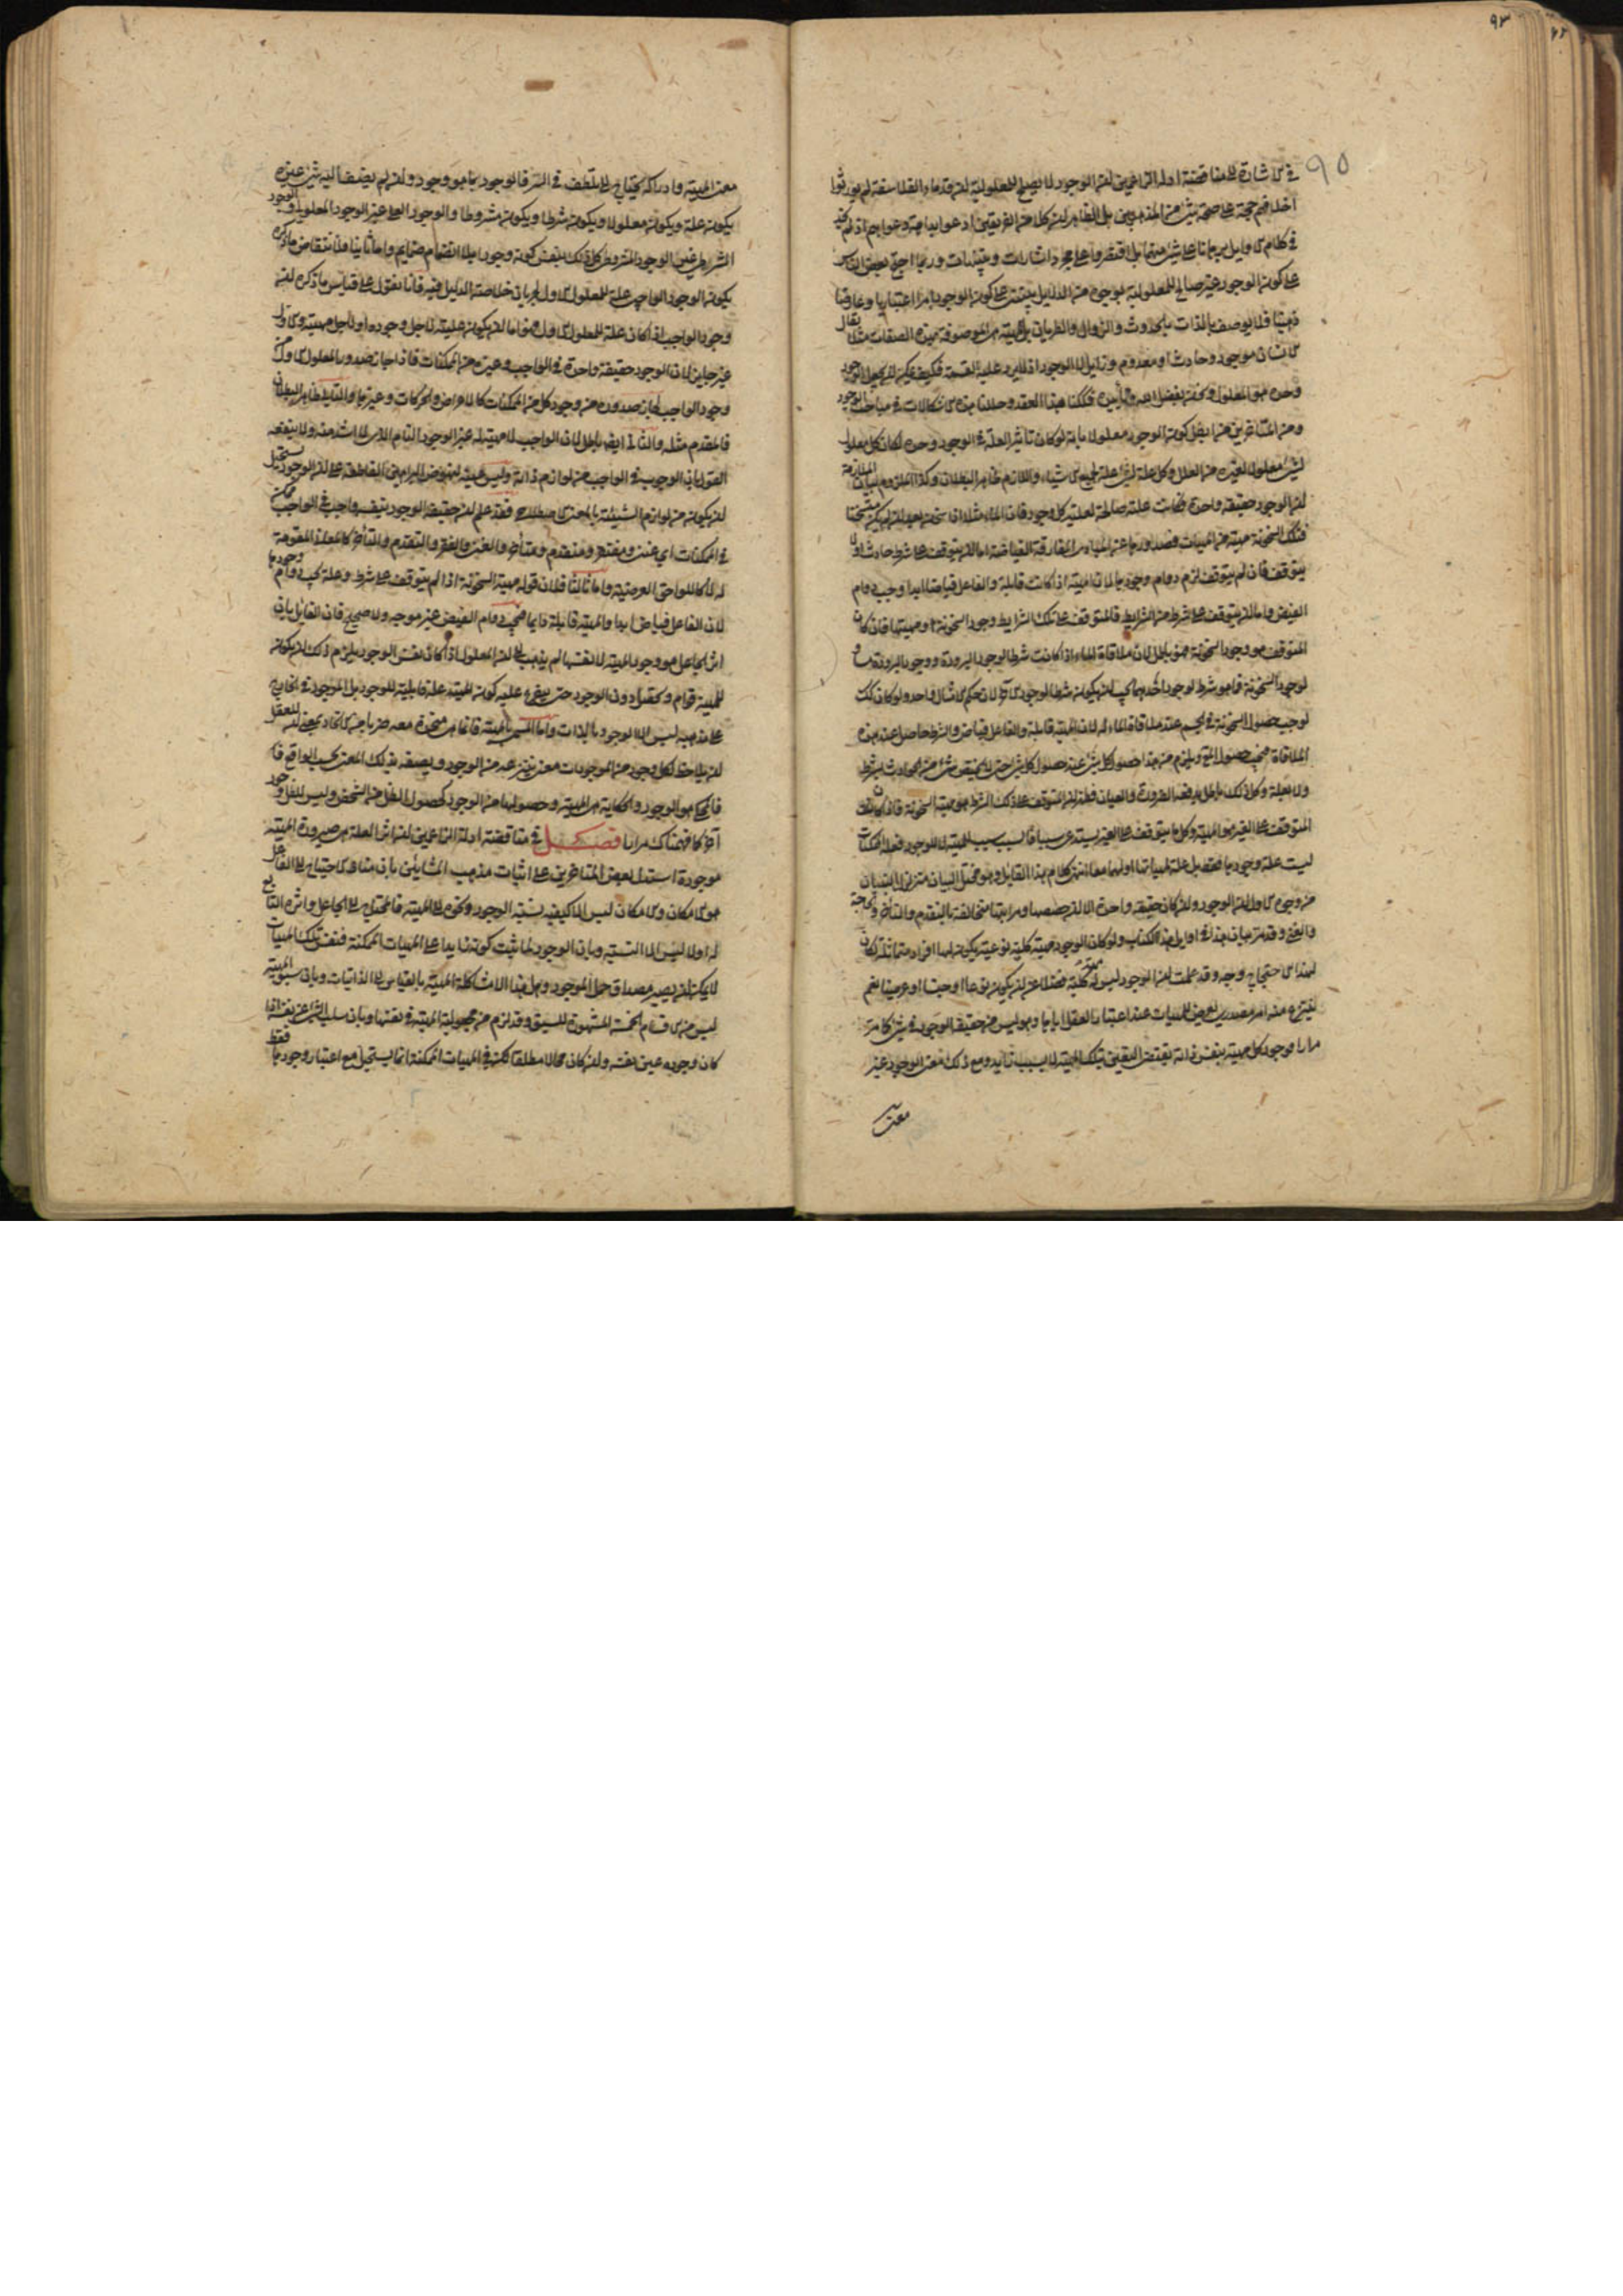 ٩٣
٩٥
في الاشارة الى مناقضة ادلة الزاعمين ان الوجود لا يصلح للمعلولية ان قدماء الفلاسفة لم يورثوا
اخلافهم حجة على صحة شيء من المذهبين بل الظاهر ان كلا من الفريقين ادعوا بداهة دعواهم اذ لم نجد
في كلام الاوايل برهانا على شيء منهما بل اقتصروا على مجرد اشارات وتنبيهات وربما احتج بعض الناس
على كون الوجود غير صالح للمعلولية بوجوه من الدلايل يبتنى على كون الوجود امرا اعتباريا وعارضا
ذهنيا فلا يوصف بالذات بالحدوث والزوال والطريان بل المهية هي الموصوفة بهذه الصفات مثلا يقال
الانسان موجود وحادث او معدوم وزايل لا الوجود اذ لا يرد عليه القسمة فكيف يمكن ان يجعل الوجود
وحده هو المعلول ونحن بفضل الله وتأييده فككنا هذه العقد وحللنا هذه الاشكالات في مباحث الوجود
ومن المتاخرين من ابطل كون الوجود معلولا بانه لو كان تاثير العلة في الوجود وحده لكان كل معلول
لشيء معلولا لغيره من العلل وكل علة لشيء علة لجميع الاشياء واللازم ظاهر البطلان وكذا الملزوم بيان الملازمة
ان الوجود حقيقة واحدة فكانت علة صالحة لعلية كل وجود فان الماء مثلا اذا سخن بعد ان لم يكن متسخنا
فتلك السخونة مهية من المهيات فصدورها عن المبادي المفارقة الفياضة اما ان يتوقف على شرط حادث او لا
يتوقف فان لم يتوقف لزم دوام وجودها لان المهية اذا كانت قابلة والفاعل فياضا ابدا وجب دوام
الفيض واما ان يتوقف على شرط من الشرايط فالمتوقف على تلك الشرايط وجود السخونة او مهيتها فان كان
المتوقف هو وجود السخونة فهو باطل لان ملاقاة الماء اذا كانت شرطا لوجود البرودة ووجود البرودة مساو
لوجود السخونة فما هو شرط لوجود احدهما يجب ان يكون شرطا لوجود الاخر لان حكم الامثال واحد ولو كان كذلك
لوجب حصول السخونة في الجسم عند ملاقاة الماء له لان المهية قابلة والفاعل فياض والشرط حاصل عند هذه
الملاقاة فيجب حصول المعلول ويلزم من هذا حصول كل شيء عند حصول كل شيء حتى لا يختص شيء من الحوادث بشرط
ولا بعلة وكل ذلك باطل يدفعه الضرورة والعيان فظهر ان المتوقف على ذلك الشرط هو مهية السخونة فاذا كانت
المتوقف على الغير هو المهية وكل ما يتوقف على الغير يستدعي سببا فالسبب سبب للمهية لا للوجود فعلة الممكنات
ليست علة وجودها فقط بل علة لمهياتها او لهما معا انتهى كلام هذا القايل وهو مختل البيان متزلزل البنيان
من وجوه الاول ان الوجود وان كان حقيقة واحدة الا ان حصصها ومراتبها متخالفة بالتقدم والتأخر والحاجة
والغنى وقد مر بيان هذا في اوايل هذا الكتاب ولو كان الوجود مهية كلية نوعية يكون لها افراد متماثلة لكان
لهذا الاحتجاج وجه وقد علمت ان الوجود ليس له مهية كلية فضلا عن ان يكون نوعا او جنسا او عرضيا نعم
ينتزع منه امر مصدري يعرض للمهيات عند اعتبار العقل اياها وهو ليس من حقيقة الوجود في شيء كما مر
مرارا فوجود كل مهية بنفس ذاته يقتضي التعين بتلك المهية لا بسبب زايد ومع ذلك معنى الوجود غير
معنى
معنى المهية وادراكه يحتاج الى تلطف في السر فالوجود بما هو وجود وان لم يضف اليه شيء غيره
يكون علة ويكون معلولا ويكون شرطا ويكون مشروطا والوجود العلي غير الوجود المعلولي والوجود
الشرطي غير الوجود المشروطي كل ذلك بنفس كونه وجودا بلا انضمام ضمايم واما ثانيا فلانتقاض ما ذكره
بكون الوجود الواجبي علة للمعلول الاول لجريان خلاصة الدليل فيه فانا نقول على قياس ما ذكره ان
وجود الواجب اذا كان علة للمعلول الاول فهو اما ان يكون عليته لاجل وجوده او لاجل مهيته والاول
غير جايز لان الوجود حقيقة واحدة في الواجب وغيره من الممكنات فاذا جاز صدور المعلول الاول من
وجود الواجب لجاز صدوره من وجود كل من الممكنات كالاعراض والحركات وغيرها والتالي ظاهر البطلان
فالمقدم مثله والثاني ايضا باطل لان الواجب لا مهية له غير الوجود التام الذي لا اشد منه ولا ينفعه
القول بان الوجوب في الواجب من لوازم ذاته وليس عينه لنهوض البراهين القاطعة على ان الوجود يستحيل
ان يكون من لوازم الشيئية بالمعنى الاصطلاحي فقد علم ان حقيقة الوجود بنفسه واجب في الواجب ممكن
في الممكنات اي غني ومفتقر ومتقدم ومتأخر والغنى والفقر والتقدم والتأخر كالمعاني المقومة
له لا كاللواحق العرضية واما ثالثا فلان قوله مهية السخونة اذا لم يتوقف على شرط وعلة يجب دوام وجودها
لان الفاعل فياض ابدا والمهية قابلة دايما فيجب دوام الفيض غير موجه ولا صحيح فان القايل بان
اثر الجاعل هو وجود المهية لا نفسها لم يذهب الى ان المعلول اذا كان نفس الوجود يلزم ذلك ان يكون
للمهية قوام وتحصل دون الوجود حتى يتفرع عليه كون المهية علة قابلية للوجود بل الموجود في الخارج
على مذهبه ليس الا الوجود بالذات واما المسمى بالمهية فانما هي متحدة معه ضربا من الاتحاد بمعنى ان للعقل
ان يلاحظ لكل وجود من الموجودات معنى ينتزعه من الوجود ويصفه بذلك المعنى بحسب الواقع فا
فالمحكي هو الوجود والحكاية هي المهية وحصولها من الوجود كحصول الظل من الشخص وليس للظل وجود
آخر كما فهمناك مرارا فصل في مناقضة ادلة الزاعمين ان اثر العلة هي صيرورة المهية
موجودة استدل بعض المتاخرين على اثبات مذهب المشائين بان مناط الاحتياج الى الفاعل
هو الامكان والامكان ليس الا كيفية نسبة الوجود ونحوه الى المهية فالمحتاج الى الجاعل واثره التابع
له اولا ليس الا النسبة وبان الوجود لما ثبت كونه زايدا على المهيات الممكنة فنفس تلك المهيات
لا يمكن ان يصير مصداق حمل الموجود وهل هذا الا شاكلة المهية بالقياس الى الذاتيات وبان سبوقية المهية
ليس من الاقسام الخمسة المشهورة للسبق وقد لزم من مجعولية المهية في نفسها وبان سلب الشيء عن نفسه اذا
كان وجوده عين نفسه وان كان محالا مطلقا لكنه في المهيات الممكنة انما يستحيل مع اعتبار وجودها فقط